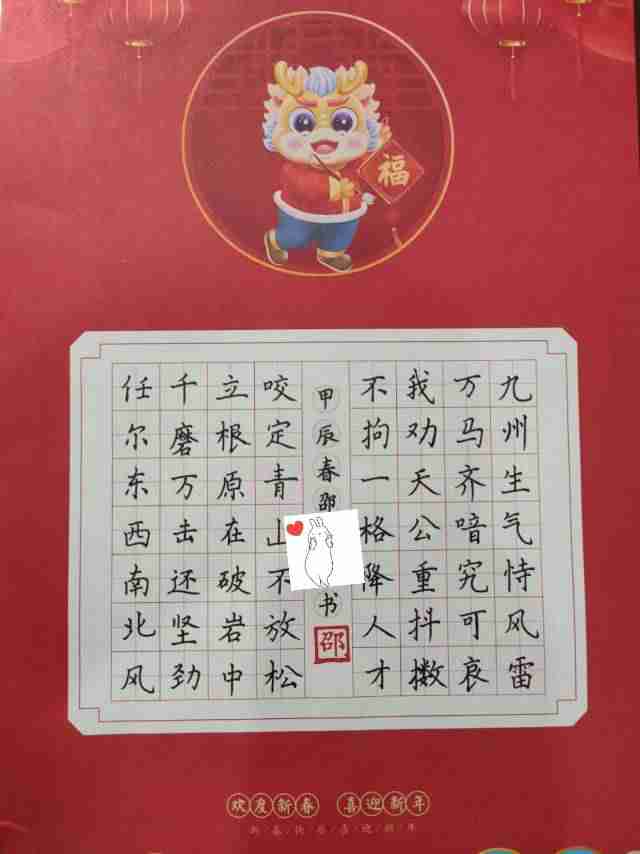 福
九州生气恃风雷
万马齐喑究可哀
我劝天公重抖擞
不拘一格降人才
甲辰春邵
书
邵
咬定青山不放松
立根原在破岩中
千磨万击还坚劲
任尔东西南北风
欢度新春 喜迎新年
新/春/快/乐/喜/迎/新/年